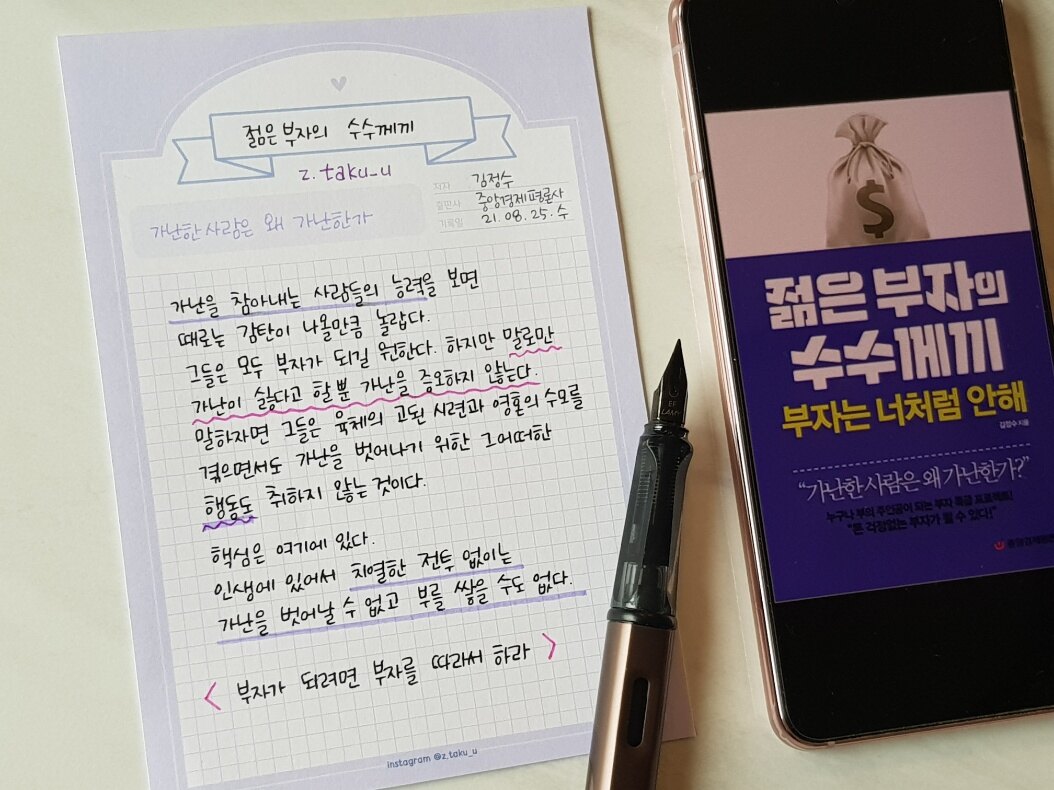 젊은 부자의 수수께끼
z.taku_u
저자 김정수
출판사 중앙경제평론사
기록일 21. 08. 25. 수
가난한 사람은 왜 가난한가
가난을 참아내는 사람들의 능력을 보면
때로는 감탄이 나올만큼 놀랍다.
그들은 모두 부자가 되길 원한다. 하지만 말로만
가난이 싫다고 할 뿐 가난을 증오하지 않는다.
말하자면 그들은 육체의 고된 시련과 영혼의 수모를
겪으면서도 가난을 벗어나기 위한 그어떠한
행동도 취하지 않는 것이다.
핵심은 여기에 있다.
인생에 있어서 치열한 전투 없이는
가난을 벗어날 수 없고 부를 쌓을 수도 없다.
< 부자가 되려면 부자를 따라서 하라 >
instagram @z.taku_u
EF
LAMY
$
젊은 부자의
수수께끼
부자는 너처럼 안해
김정수 지음
“가난한 사람은 왜 가난한가?”
누구나 부의 주인공이 되는 부자 특급 프로젝트!
"돈 걱정없는 부자가 될 수 있다!"
중앙경제평론사